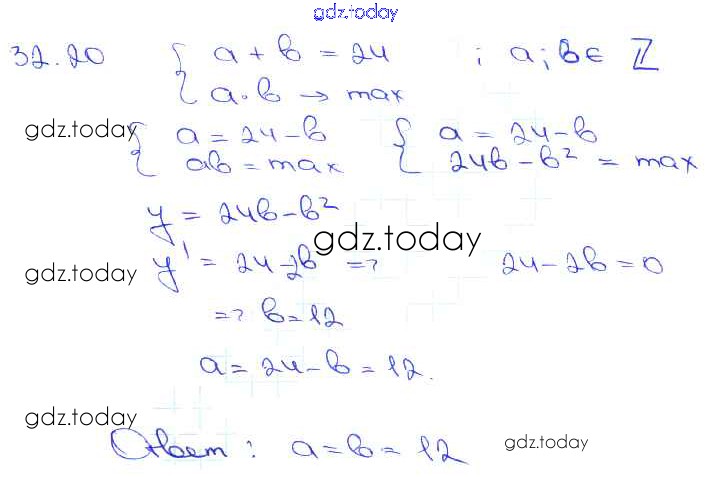 gdz.today
32.20 { a + b = 24 ; a; b ∈ ℤ
a·b → max
gdz.today { a = 24 - b { a = 24 - b
ab = max 24b - b² = max
y = 24b - b²
gdz.today
gdz.today y' = 24 - 2b => 24 - 2b = 0
=> b = 12
a = 24 - b = 12.
gdz.today
Ответ: a = b = 12 gdz.today